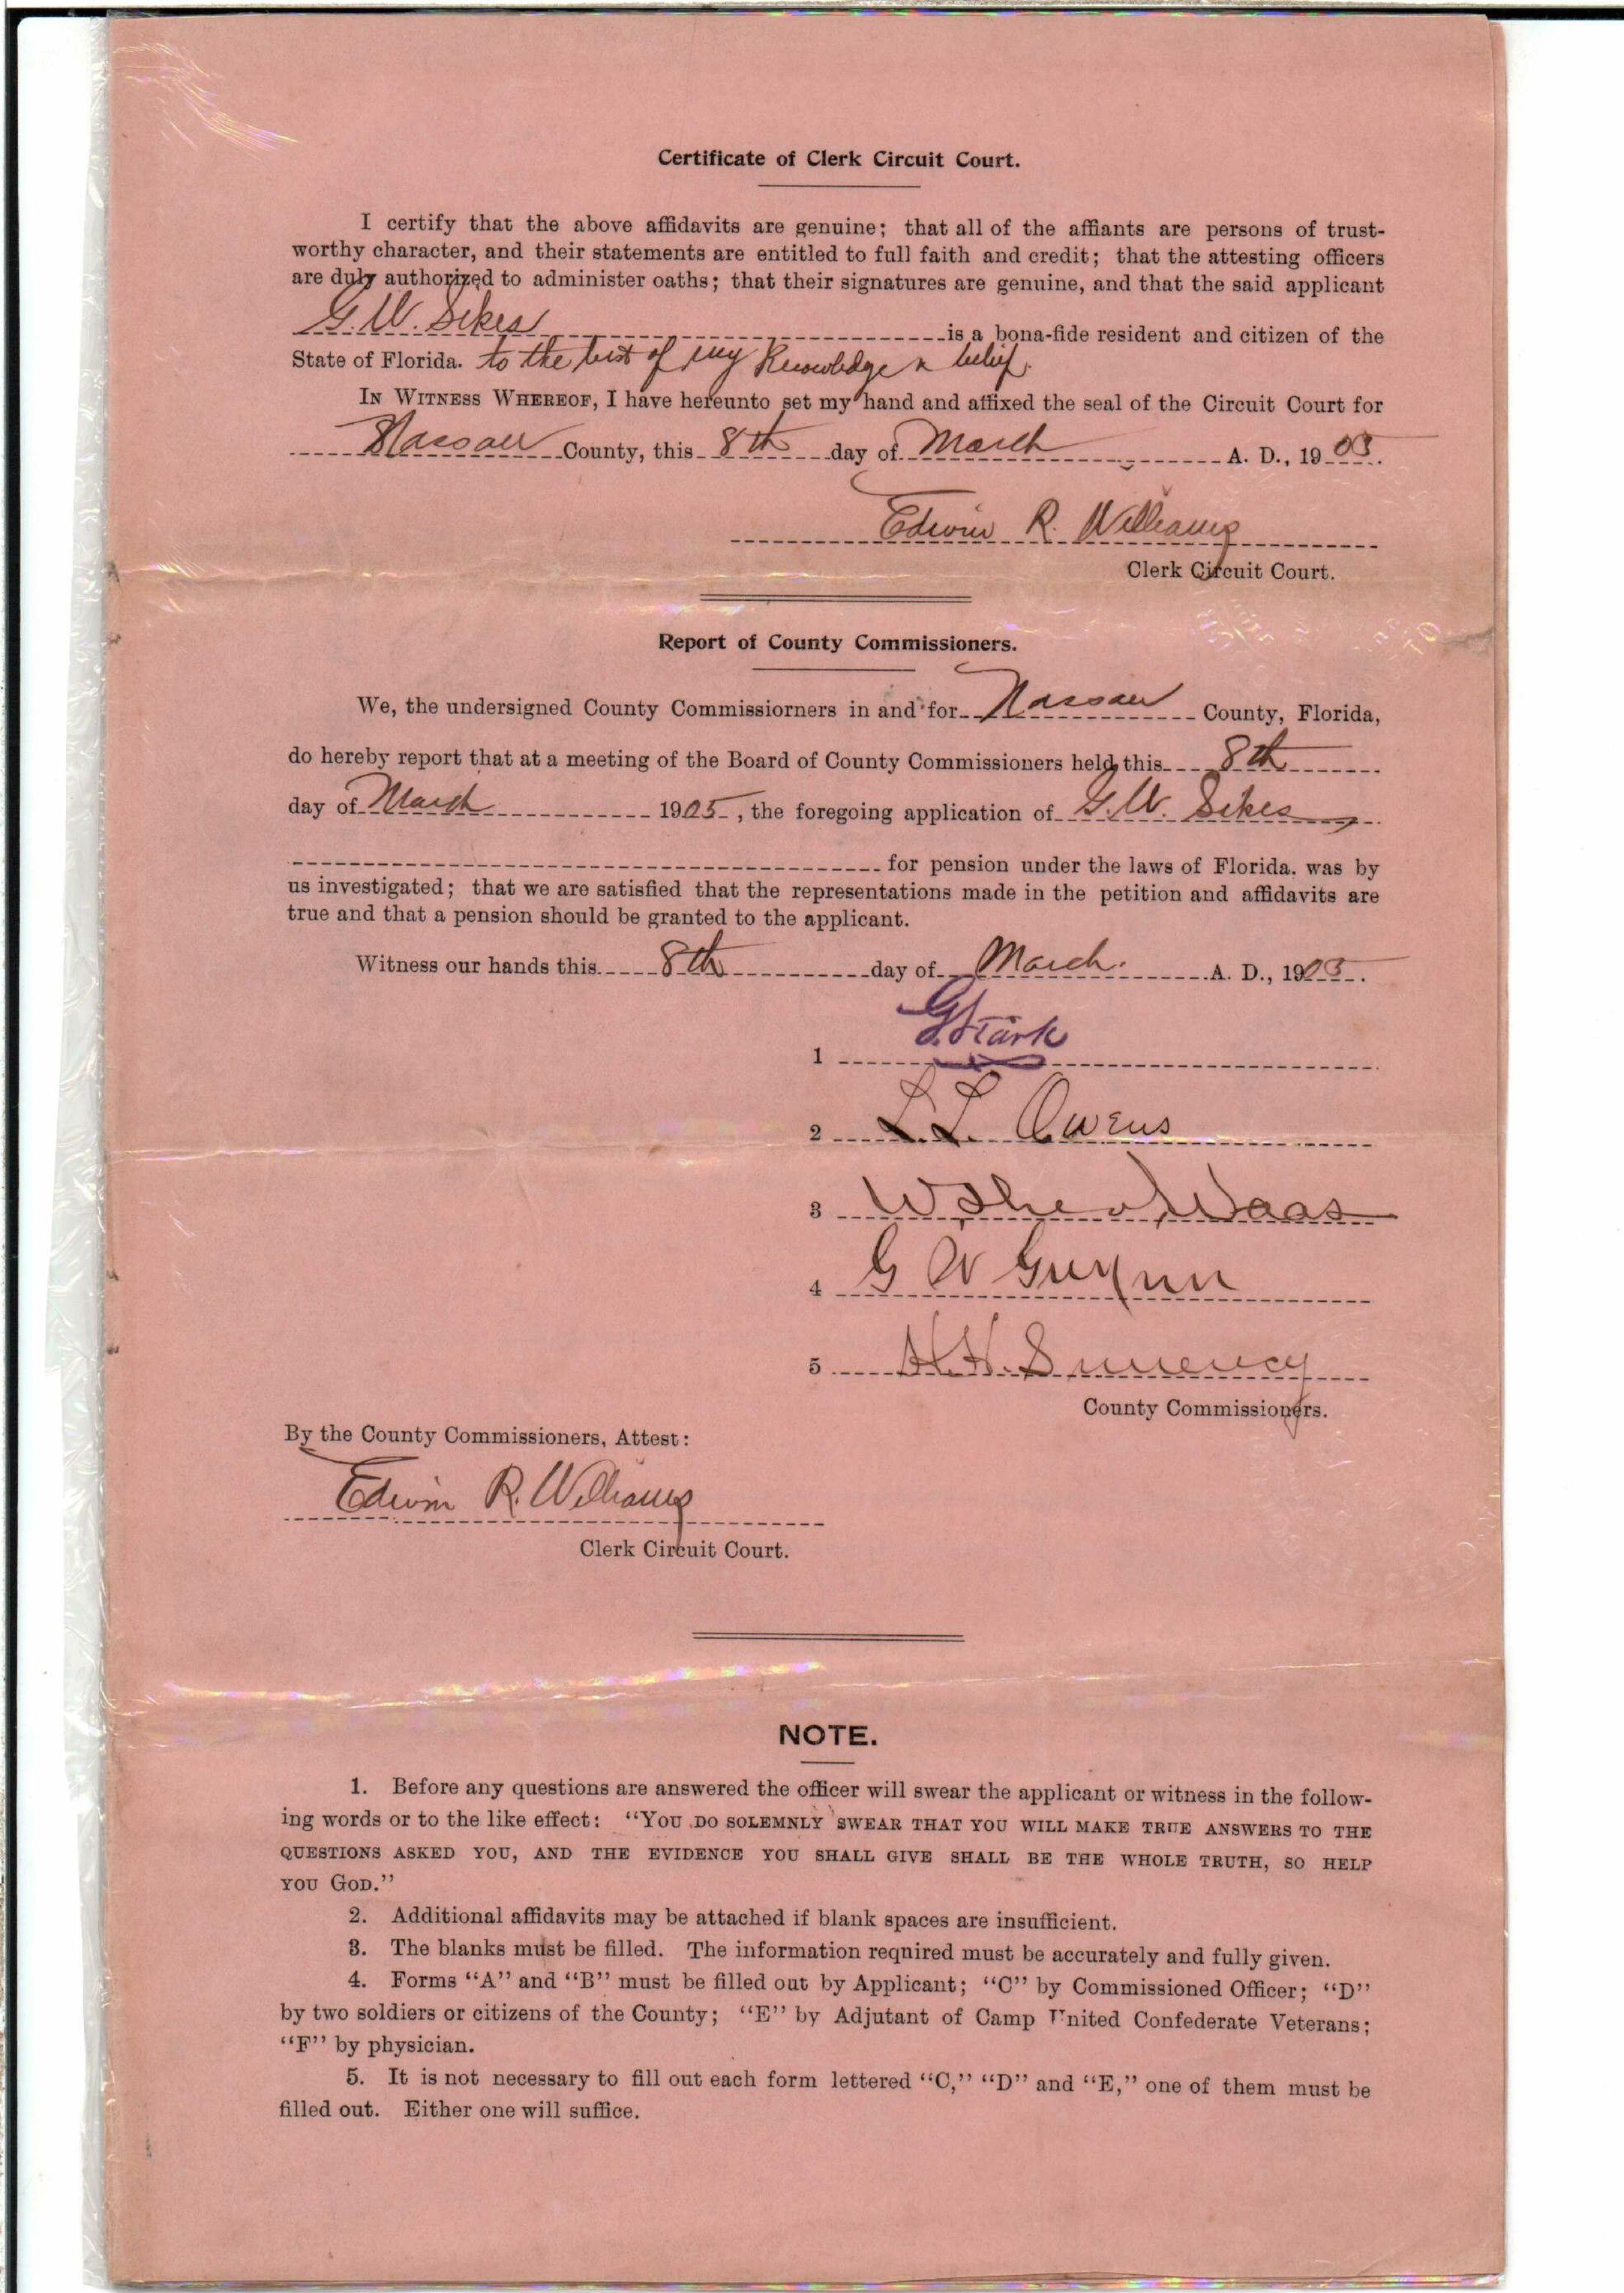 Certificate of Clerk Circuit Court.
I certify that the above affidavits are genuine; that all of the affiants are persons of trust-
worthy character, and their statements are entitled to full faith and credit; that the attesting officers
are duly authorized to administer oaths; that their signatures are genuine, and that the said applicant
G. W. Sikes is a bona-fide resident and citizen of the
State of Florida. to the best of my Knowledge & belief.
IN WITNESS WHEREOF, I have hereunto set my hand and affixed the seal of the Circuit Court for
Nassau County, this 8th day of March A. D., 1905.
Edwin R. Williams
Clerk Circuit Court.
Report of County Commissioners.
We, the undersigned County Commissiorners in and for Nassau County, Florida,
do hereby report that at a meeting of the Board of County Commissioners held this 8th
day of March 1905, the foregoing application of G. W. Sikes
for pension under the laws of Florida. was by
us investigated; that we are satisfied that the representations made in the petition and affidavits are
true and that a pension should be granted to the applicant.
Witness our hands this 8th day of March. A. D., 1905.
1 G. Stark
2 L. L. Owens
3 Waas
4 G W Gwynn
5 H. H.
County Commissioners.
By the County Commissioners, Attest:
Edwin R. Williams
Clerk Circuit Court.
NOTE.
1. Before any questions are answered the officer will swear the applicant or witness in the follow-
ing words or to the like effect: "YOU DO SOLEMNLY SWEAR THAT YOU WILL MAKE TRUE ANSWERS TO THE
QUESTIONS ASKED YOU, AND THE EVIDENCE YOU SHALL GIVE SHALL BE THE WHOLE TRUTH, SO HELP
YOU GOD."
2. Additional affidavits may be attached if blank spaces are insufficient.
3. The blanks must be filled. The information required must be accurately and fully given.
4. Forms "A" and "B" must be filled out by Applicant; "C" by Commissioned Officer; "D"
by two soldiers or citizens of the County; "E" by Adjutant of Camp United Confederate Veterans;
"F" by physician.
5. It is not necessary to fill out each form lettered "C," "D" and "E," one of them must be
filled out. Either one will suffice.